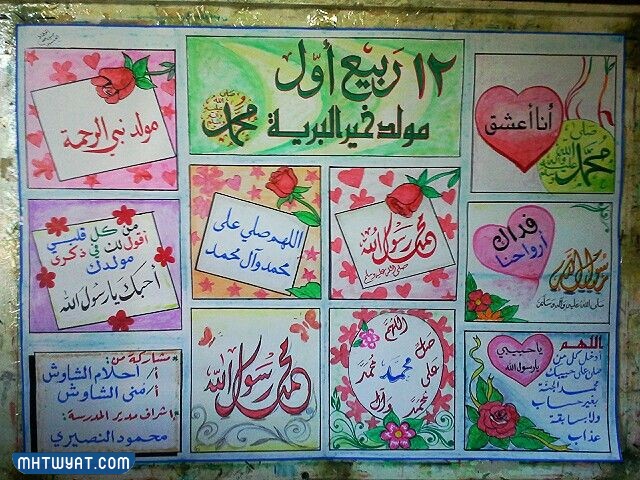 ١٢ ربيع أول
مولد خير البرية
محمد
ﷺ
أنا أعشق
محمد
مولد نبي الرحمة
من كل قلبي
أقول لك في ذكرى
مولدك
أحبك يا رسول الله
اللهم صلي على
محمد وآل محمد
محمد رسول الله
صلى الله عليه وسلم
فداك
أرواحنا
صلى الله عليه وآله وسلم
محمد رسول الله
اللهم
صل
على
محمد
وآل
محمد
يا حبيبي
يا رسول الله
اللهم
ادخل كل من
صلى على حبيبك
محمد الجنة
بغير حساب
ولا سابقة
عذاب
مشاركة من:
أ/ أحلام الشاوش
أ/ منى الشاوش
إشراف مدير المدرسة:
محمود النصيري
MHTWYAT.COM